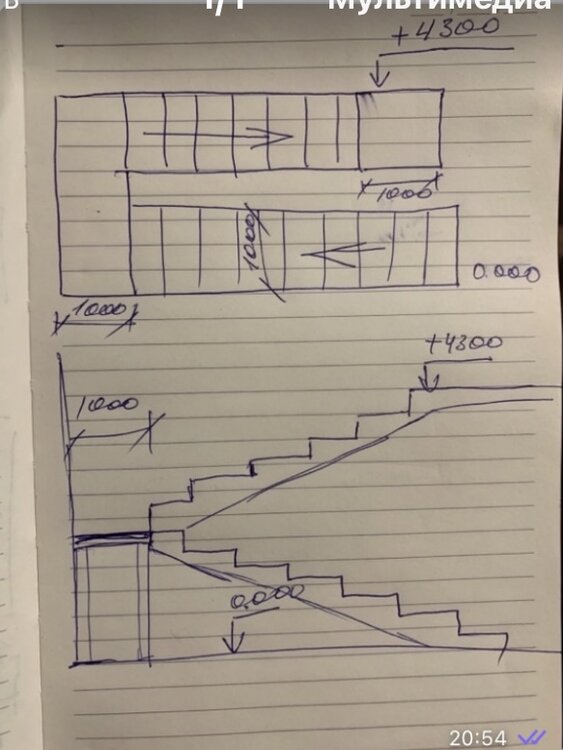 1/1
Мультимедиа
+4300
1000
1000
0.000
1000
+4300
1000
0.000
20:54